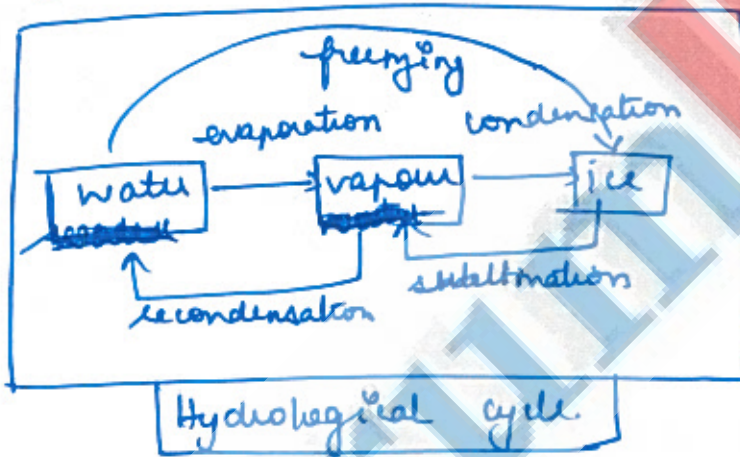 freezing
evaporation condensation
water vapour ice
sublimation
recondensation
Hydrological cycle.